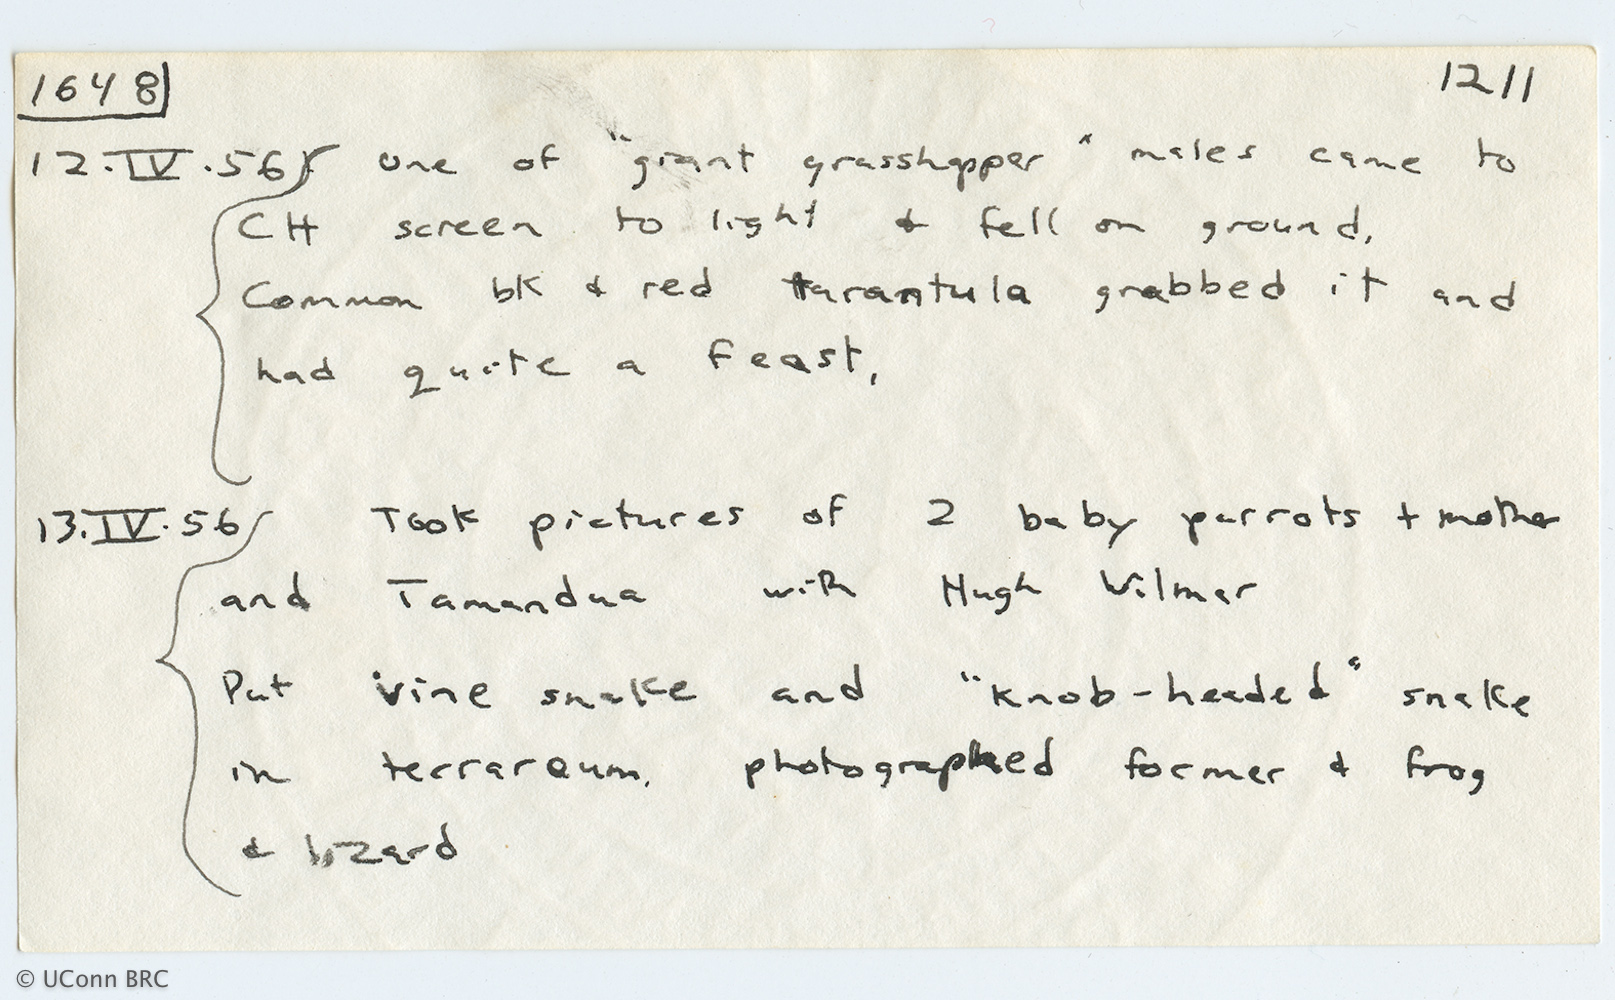 1648 1211
12.IV.56 One of "giant grasshopper" males came to
CH screen to light & fell on ground.
Common bk & red tarantula grabbed it and
had quite a feast.
13.IV.56 Took pictures of 2 baby parrots + mother
and Tamandua with Hugh Wilmar
Put vine snake and "knob-headed" snake
in terrareum. photographed former & frog
& lizard
© UConn BRC